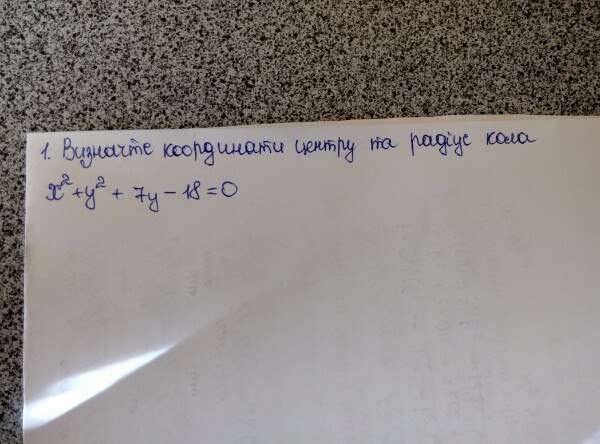 1. Визначте координати центру та радіус кола
x²+y² + 7y - 18 = 0